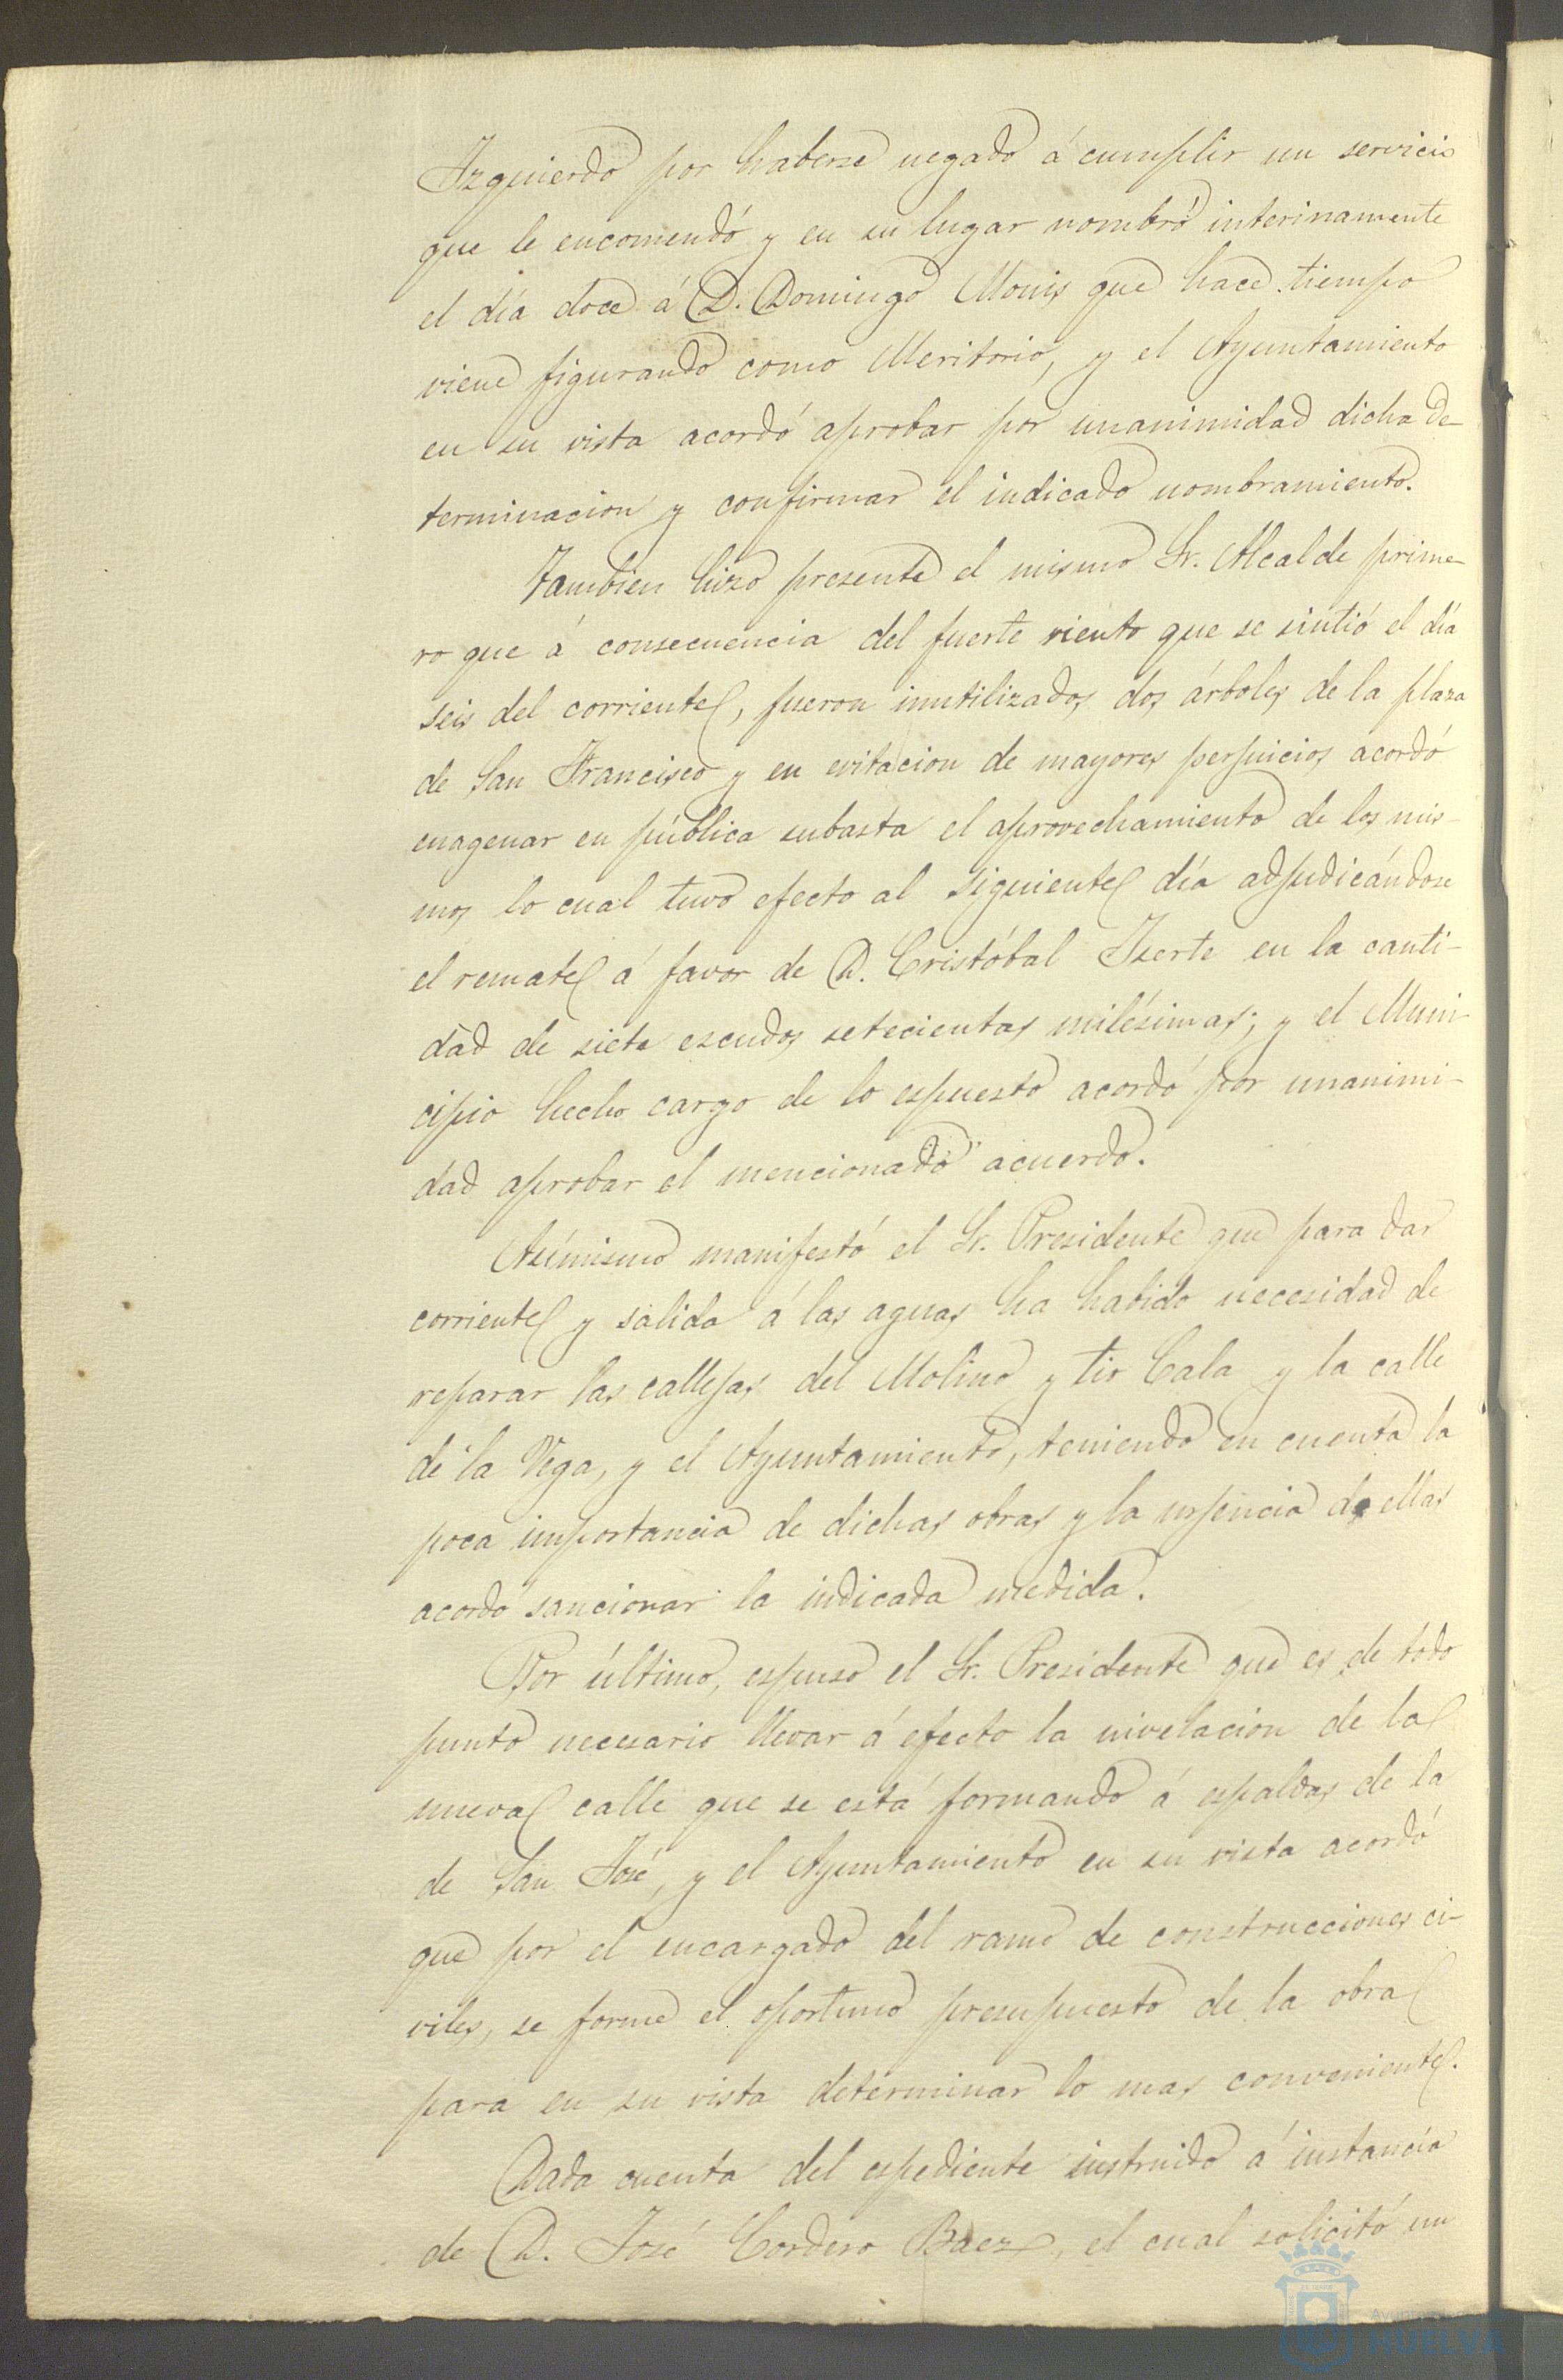 Izquierdo por haberse negado á cumplir un servicio
que le encomendó y en su lugar nombró interinamente
el día doce á D. Domingo Monis que hace tiempo
viene figurando como Meritorio, y el Ayuntamiento
en su vista acordó aprobar por unanimidad dicha de-
terminacion y confirmar el indicado nombramiento.
Tambien hizo presente el mismo Sr. Alcalde prime-
ro que á consecuencia del fuerte viento que se sintió el día
seis del corriente, fueron inutilizados dos árboles de la plaza
de San Francisco y en evitacion de mayores perjuicios acordó
enagenar en pública subasta el aprovechamiento de los mis-
mos lo cual tuvo efecto al siguiente día adjudicándose
el remate á favor de D. Cristóbal Iserte en la canti-
dad de siete escudos setecientas milésimas; y el Muni-
cipio hecho cargo de lo espuesto acordó por unanimi-
dad aprobar el mencionado acuerdo.
Asímismo manifestó el Sr. Presidente que para dar
corriente y salida á las aguas ha habido necesidad de
reparar las callejas del Molino y tio Cala y la calle
de la Vega, y el Ayuntamiento, teniendo en cuenta la
poca importancia de dichas obras y la urjencia de ellas
acordó sancionar la indicada medida.
Por último, espuso el Sr. Presidente que es de todo
punto necesario llevar á efecto la nivelacion de la
nueva calle que se está formando á espaldas de la
de San José, y el Ayuntamiento en su vista acordó
que por el encargado del ramo de construcciones ci-
viles, se forme el oportuno presupuesto de la obra
para en su vista determinar lo mas conveniente.
Dada cuenta del espediente instruido á instancia
de D. José Cordero Baez, el cual solicitó un
HUELVA